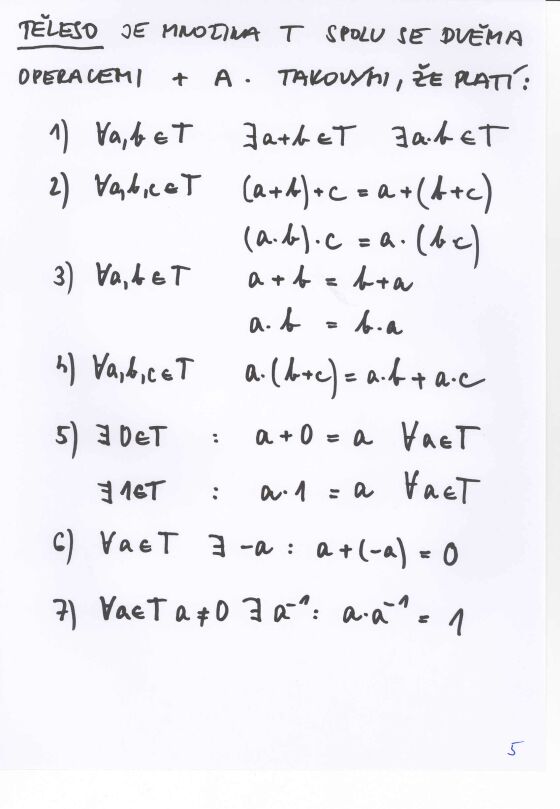 TĚLESO JE MNOŽINA T SPOLU SE DVĚMA
OPERACEMI + A · TAKOVÝMI, ŽE PLATÍ:
1) ∀a,b∈T ∃a+b∈T ∃a·b∈T
2) ∀a,b,c∈T (a+b)+c = a+(b+c)
(a·b)·c = a·(bc)
3) ∀a,b∈T a+b = b+a
a·b = b·a
4) ∀a,b,c∈T a·(b+c)=a·b+a·c
5) ∃0∈T : a+0 = a ∀a∈T
∃1∈T : a·1 = a ∀a∈T
6) ∀a∈T ∃ -a : a+(-a) = 0
7) ∀a∈T a≠0 ∃ a⁻¹: a·a⁻¹ = 1
5